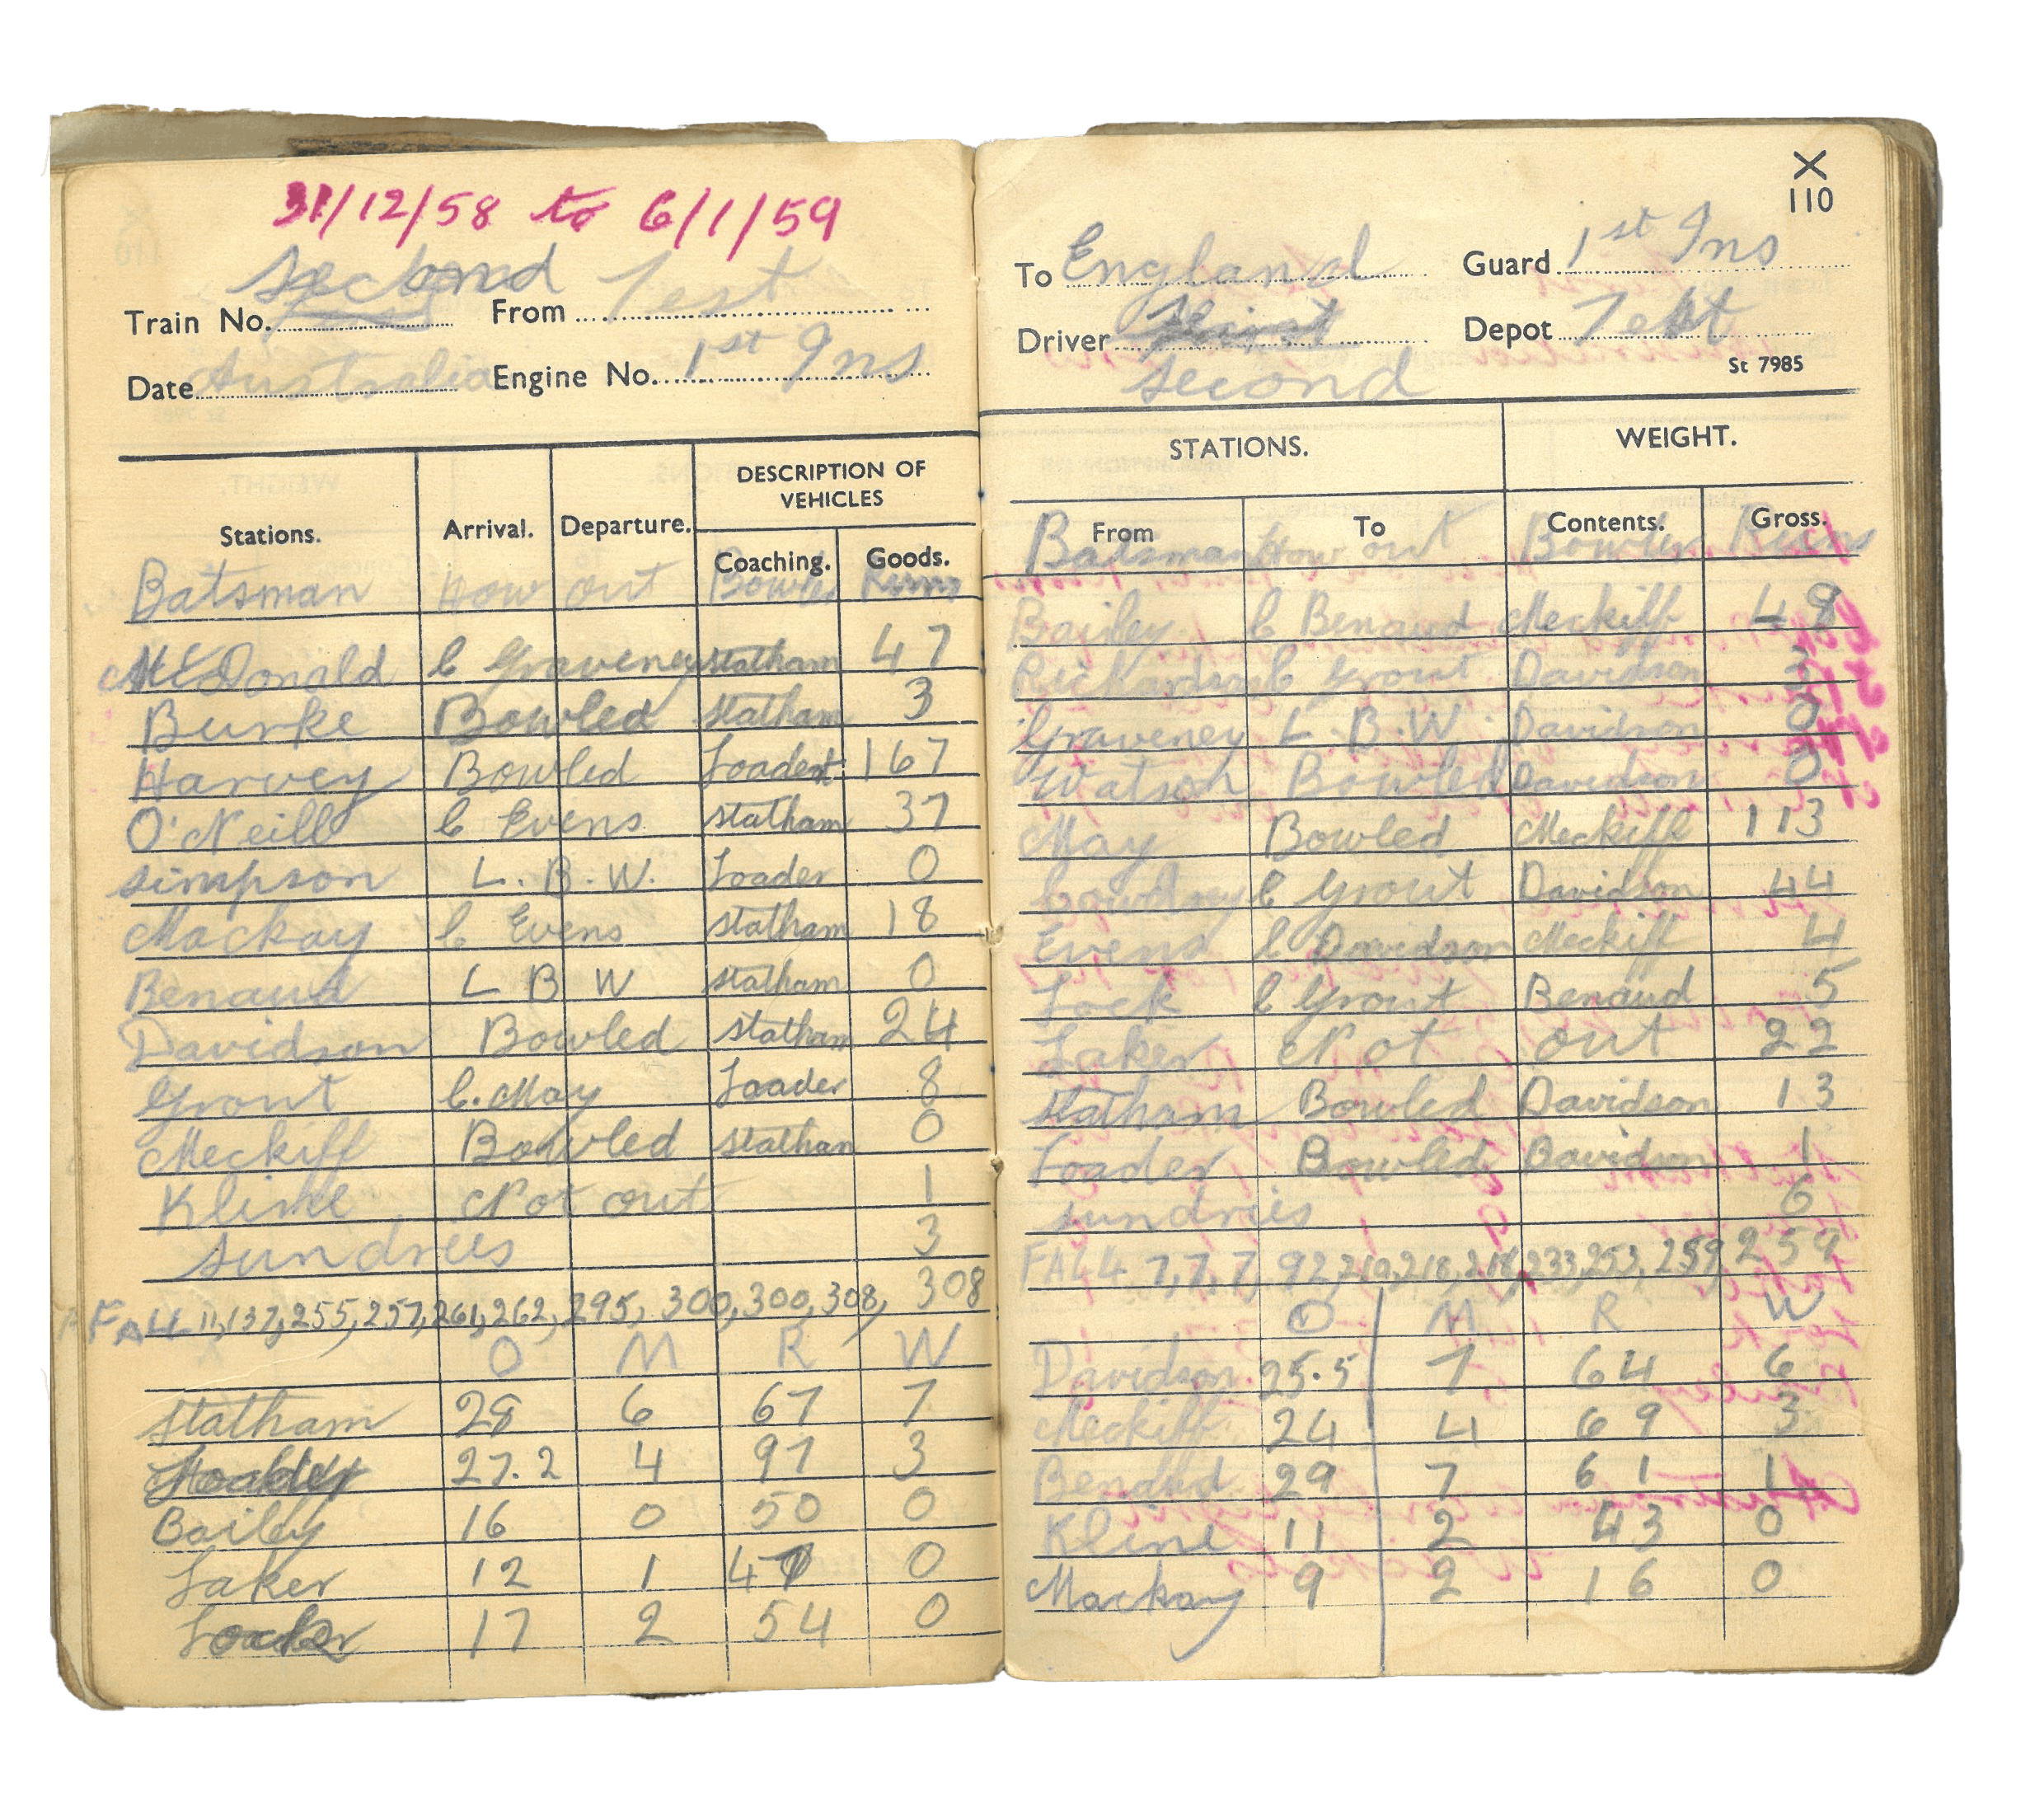 31/12/58 to 6/1/59
Second
Train No. From Test
Date Australia Engine No. 1st Ins
Stations. Arrival. Departure. DESCRIPTION OF VEHICLES
Coaching. Goods.
Batsman How out Bowler Runs
McDonald C Graveney Statham 47
Burke Bowled Statham 3
Harvey Bowled Loader 167
O'Neill C Evens Statham 37
Simpson L.B.W. Loader 0
Mackay C Evens Statham 18
Benaud L B W Statham 0
Davidson Bowled Statham 24
Grout C. May Loader 8
Meckiff Bowled Statham 0
Kline Not out 1
Sundries 3
FALL 11, 137, 255, 257, 261, 262, 295, 300, 300, 308, 308
O M R W
Statham 28 6 67 7
Loader 27.2 4 97 3
Bailey 16 0 50 0
Laker 12 1 47 0
Lock 17 2 54 0
X
110
To England Guard 1st Ins
Driver First Depot Test
Second St 7985
STATIONS. WEIGHT.
From To Contents. Gross.
Batsman How out Bowler Runs
Bailey C Benaud Meckiff 48
Richardson C Grout Davidson 3
Graveney L.B.W. Davidson 0
Watson Bowled Davidson 0
May Bowled Meckiff 113
Cowdrey C Grout Davidson 44
Evens C Davidson Meckiff 4
Lock C Grout Benaud 5
Laker Not out 22
Statham Bowled Davidson 13
Loader Bowled Davidson 1
Sundries 6
FALL 7, 7, 7, 92, 210, 218, 218, 233, 253, 259, 259
O M R W
Davidson 25.5 7 64 6
Meckiff 24 4 69 3
Benaud 29 7 61 1
Kline 11 2 43 0
Mackay 9 2 16 0